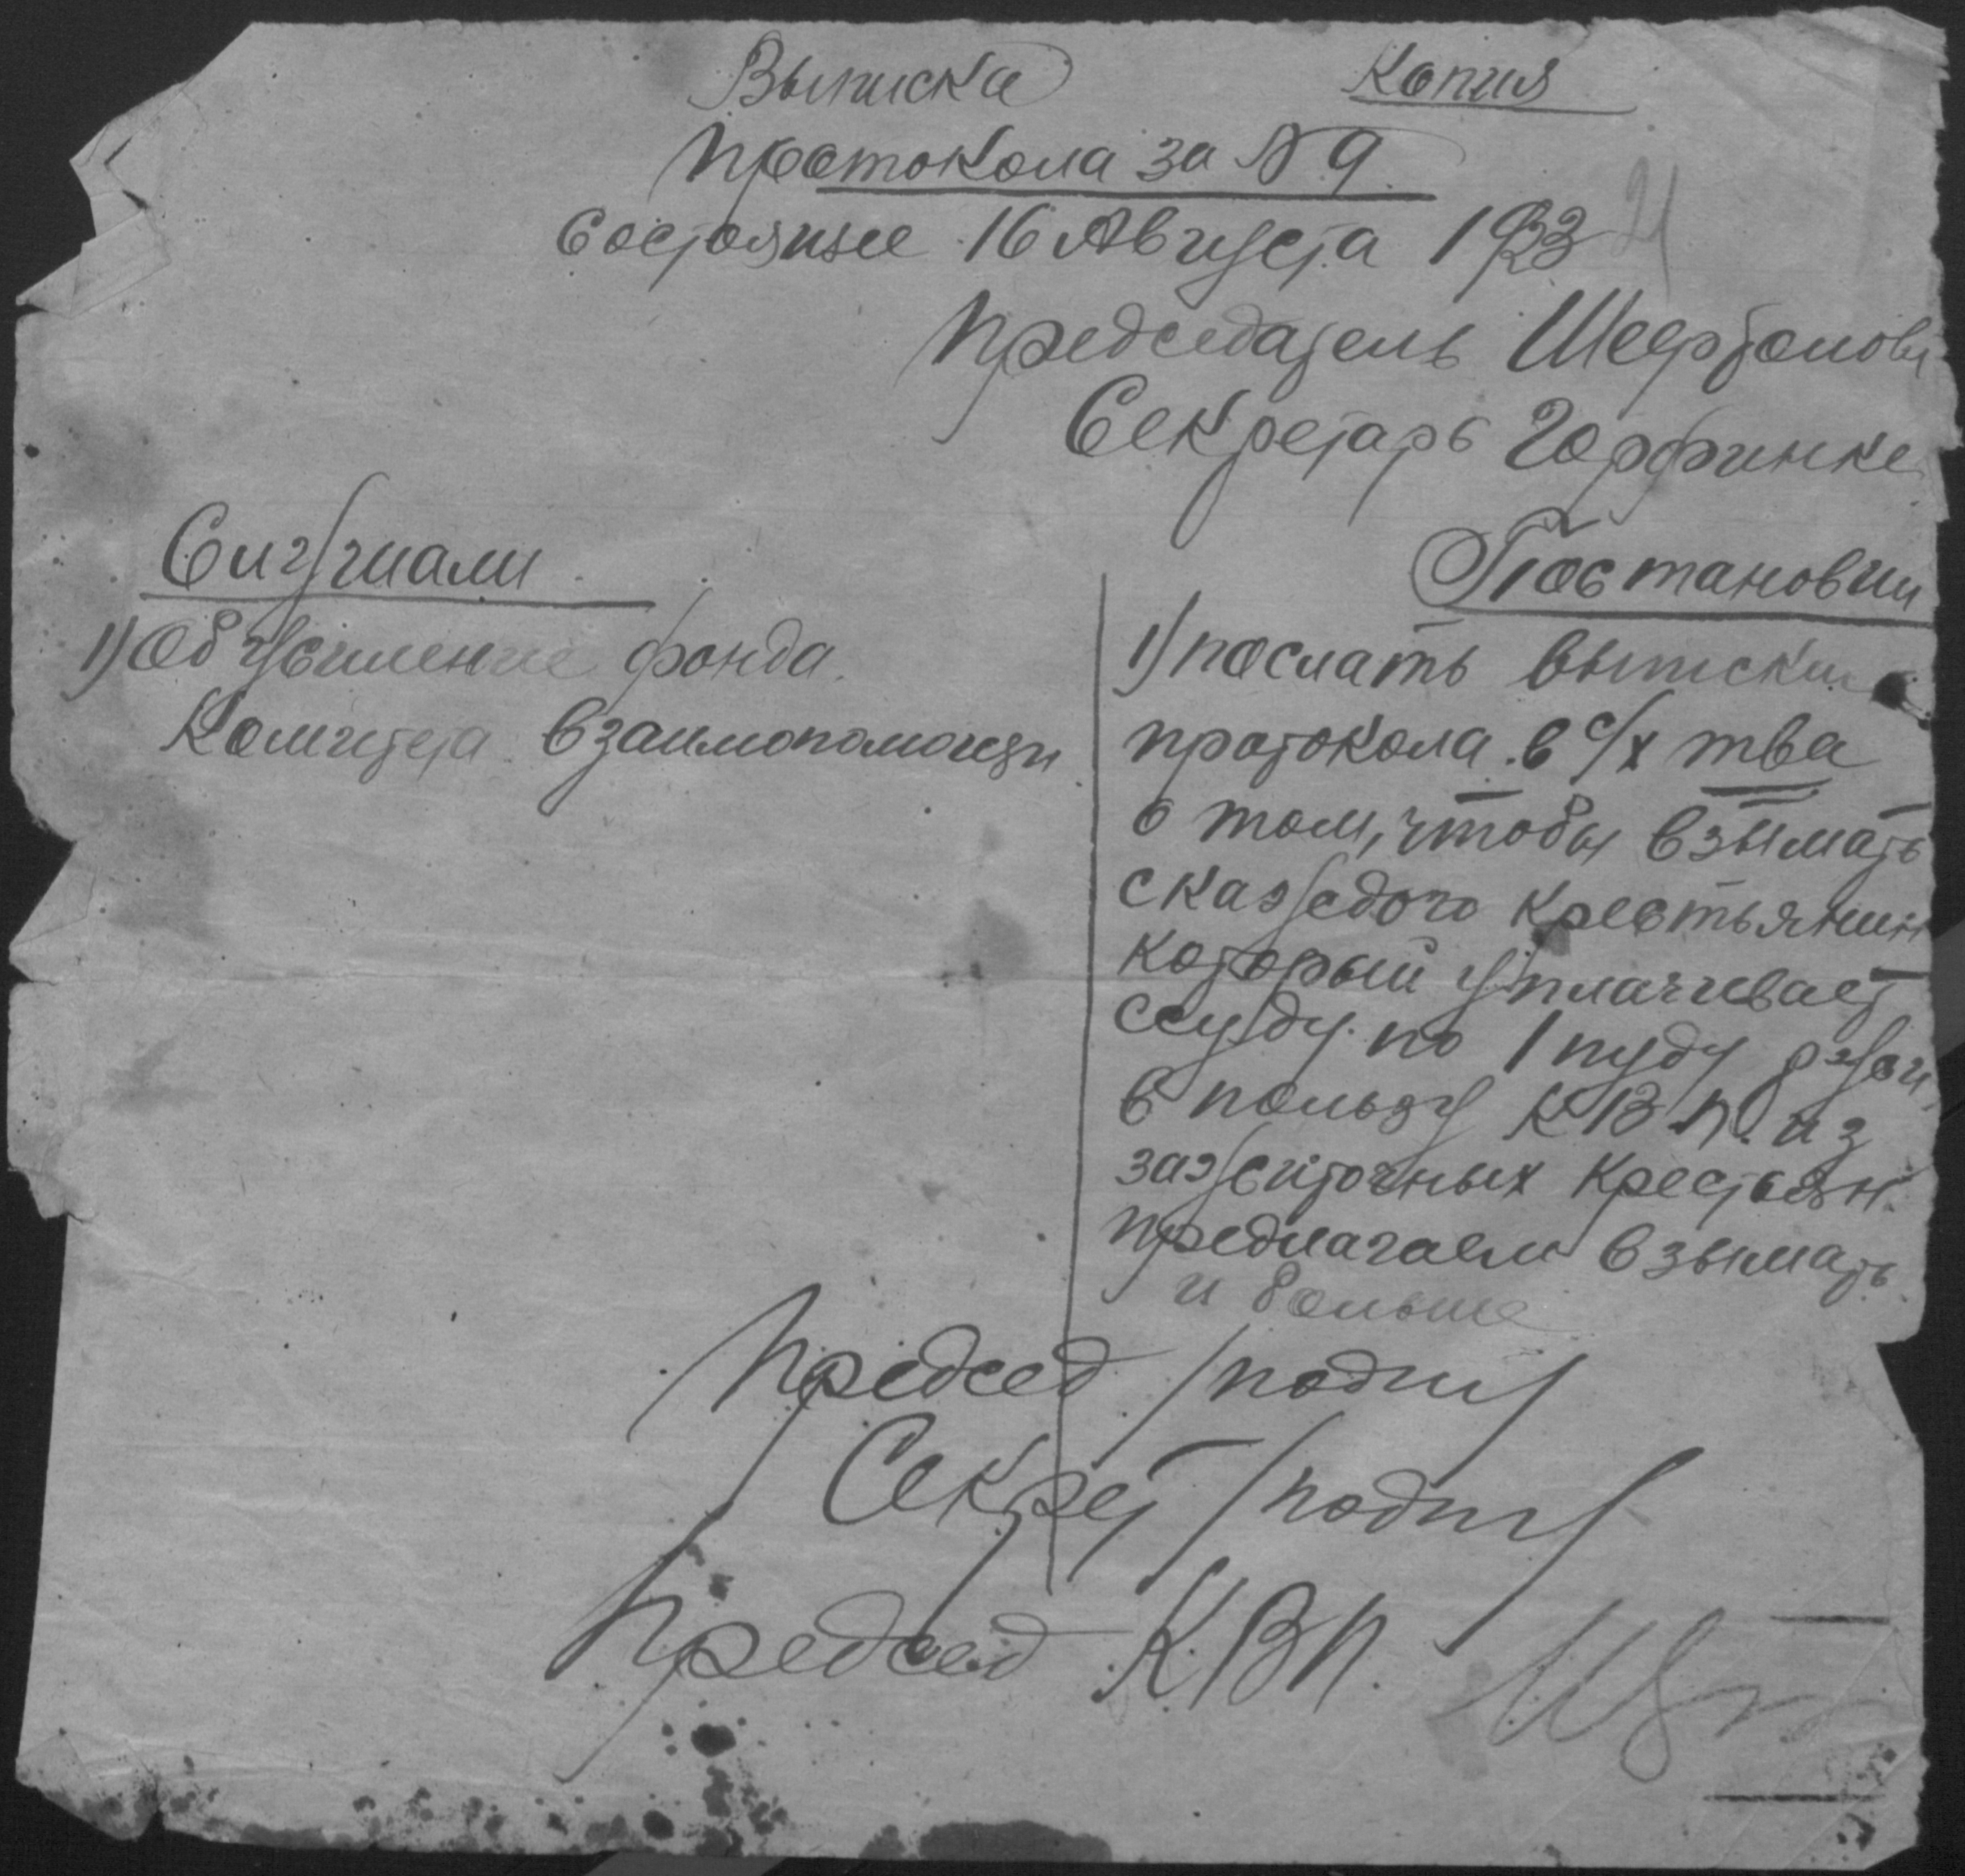 Выписка
Копия
протокола за № 9
Состояние 16 Августа 1923
21
Председатель
Секретарь Горфинке
Слушали
Постановил
1) Об усиление фонда
Комитета взаимопомощи
1) послать выписки
протокола в с/х тва
о том, чтобы взымать
с каждого крестьянин
который уплачивает
ссуду по 1 пуду ржи
в пользу К.В.П. из
зажиточных крестьян
предлагаем взымать
и больше
Председ /подпис/
Секрет /подпис/
Председ КВП.